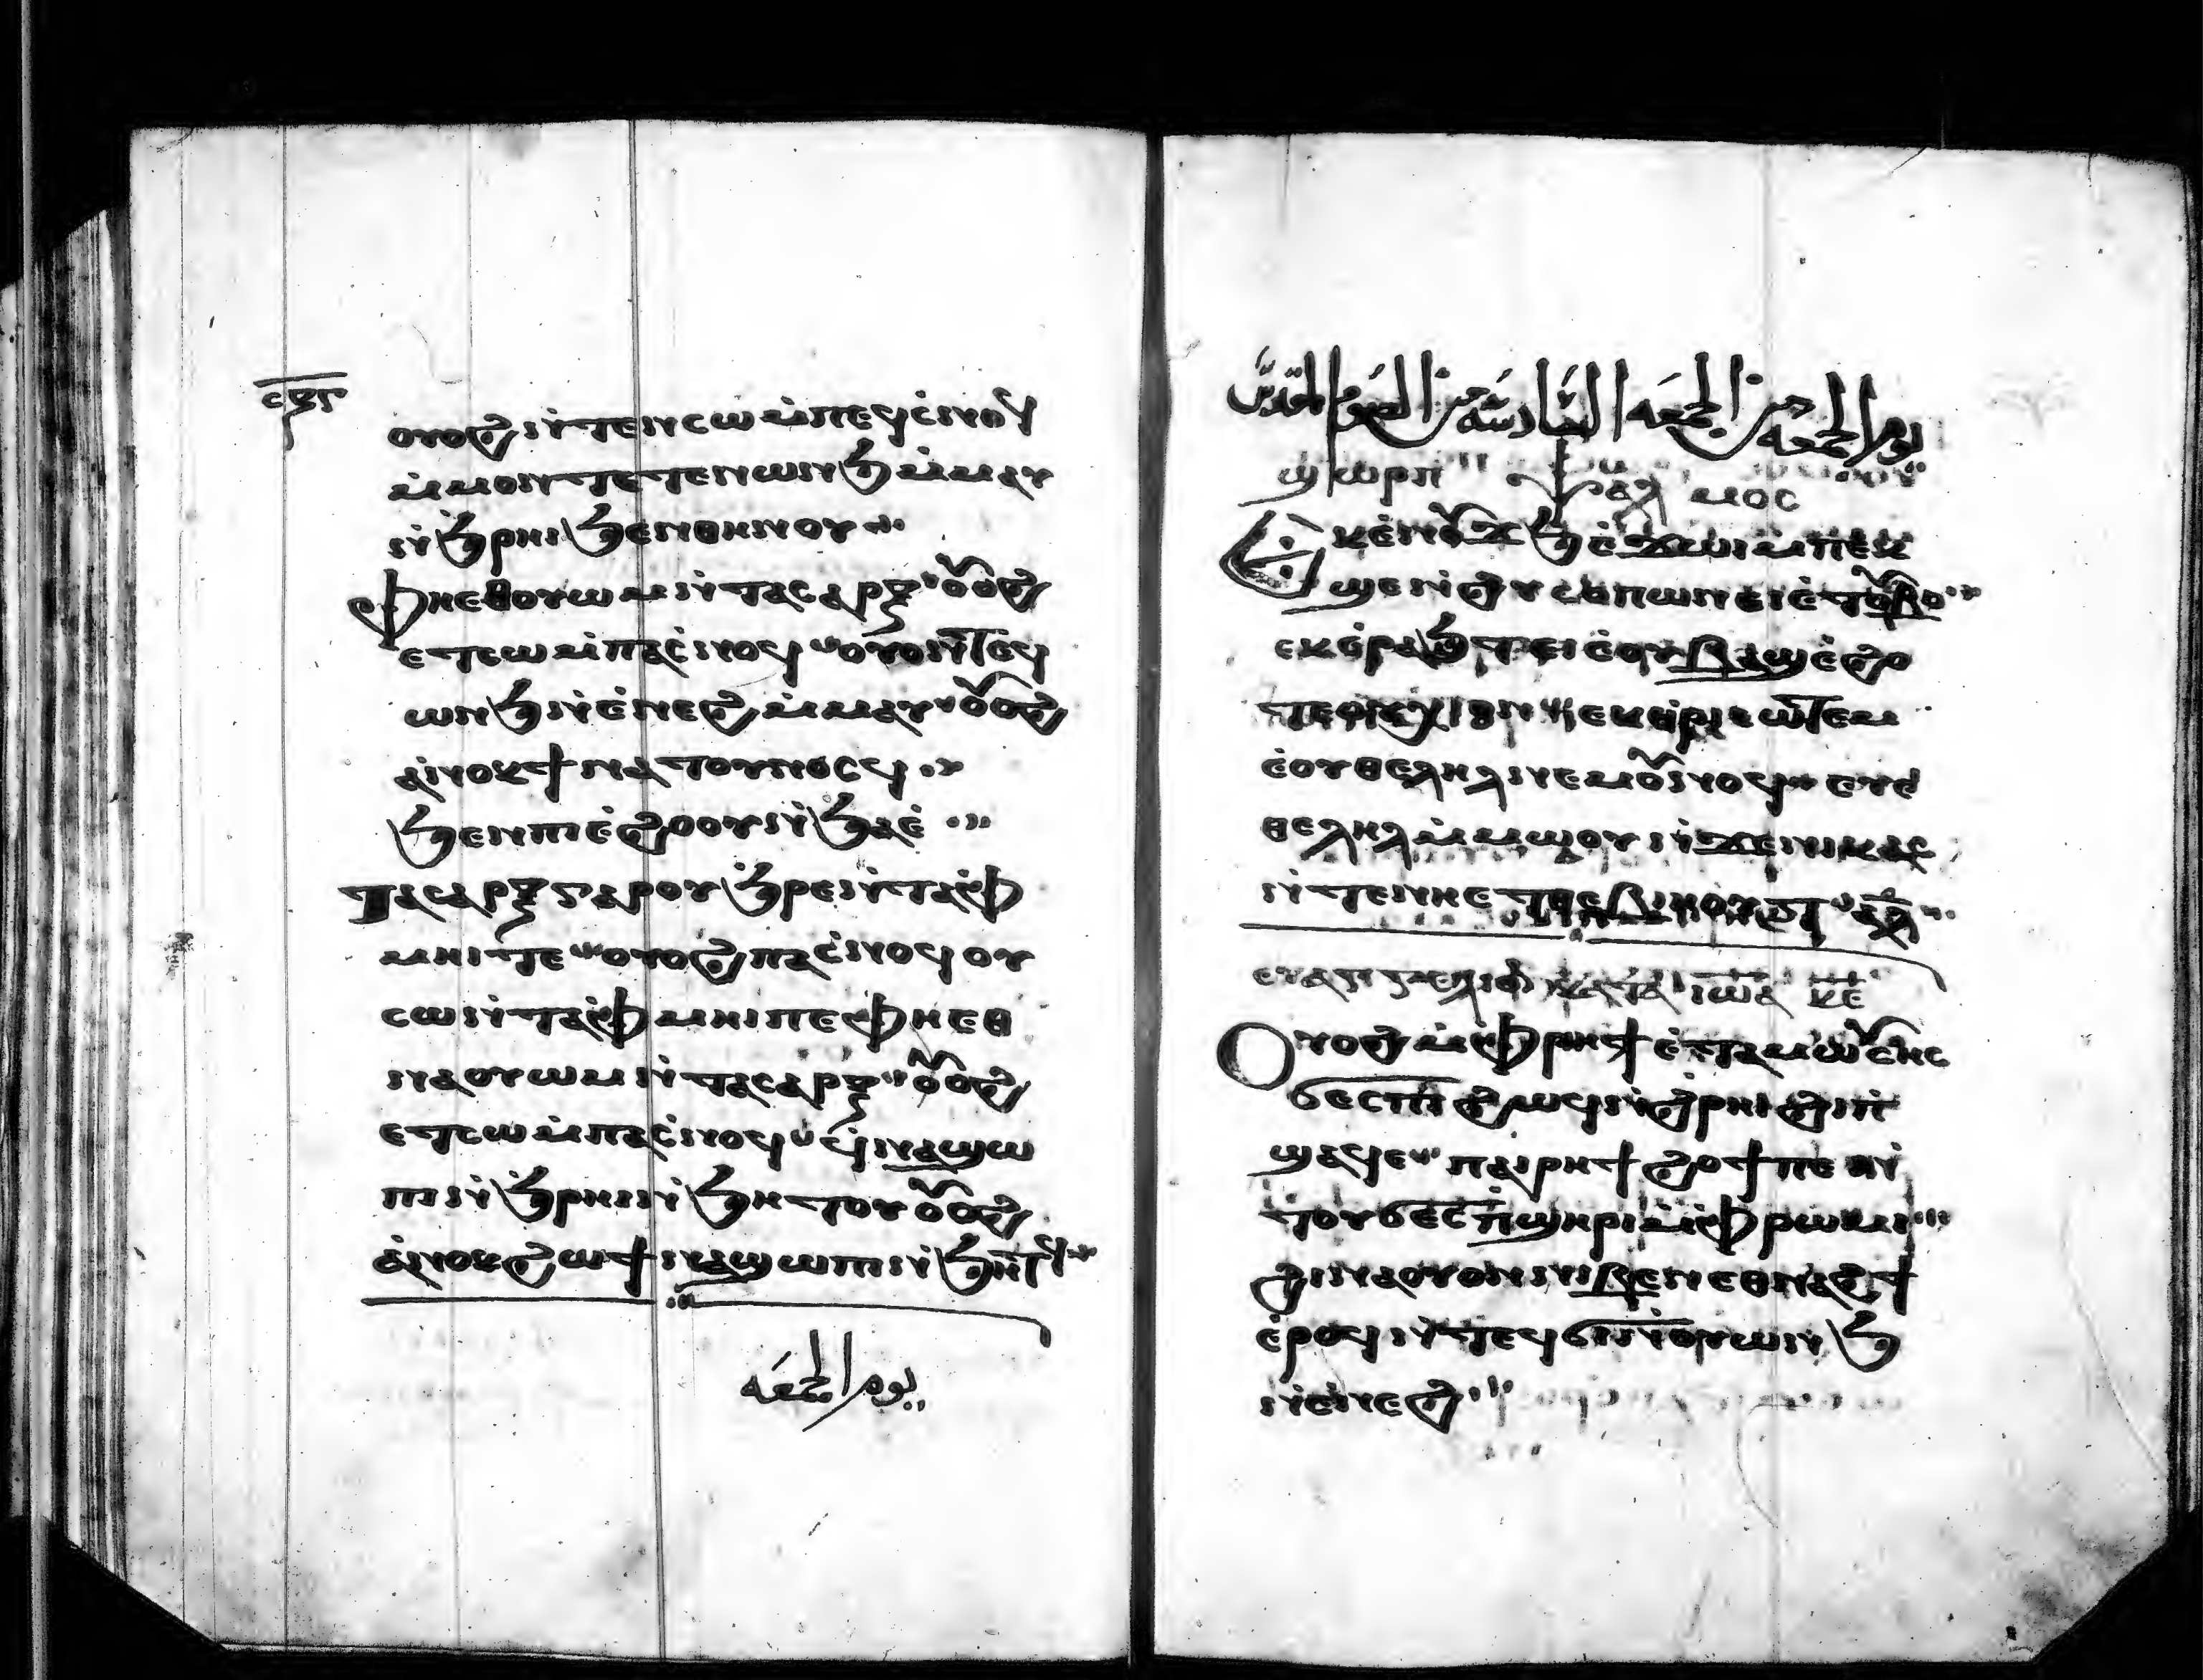 ⲥϥⲋ
ⲟⲩⲟϩ ⲛ̀ⲧⲉⲛⲥⲱ ⲙ̀ⲡⲉϥⲥ̀ⲛⲟϥ
ⲙ̀ⲙⲟⲛⲧⲉⲧⲉⲛ ⲱⲛϧ ⲙ̀ⲙⲁⲩ
ⲛ̀ϧⲣⲏⲓ ϧⲉⲛ ⲑⲏⲛⲟⲩ
ⲫⲏⲉⲑⲟⲩⲱⲙ ⲛ̀ⲧⲁⲥⲁⲣⲝ ⲟⲩⲟϩ
ⲉⲧⲥⲱ ⲙ̀ⲡⲁⲥ̀ⲛⲟϥ ⲟⲩⲟⲛⲧⲉϥ
ⲱⲛϧ ⲛ̀ⲉ̀ⲛⲉϩ ⲙ̀ⲙⲁⲩ ⲟⲩⲟϩ
ⲁ̀ⲛⲟⲕ ϯⲛⲁⲧⲟⲩⲛⲟⲥϥ
ϧⲉⲛ ⲡⲓⲉ̀ϩⲟⲟⲩ ⲛ̀ϧⲁⲉ̀
ⲧⲁⲥⲁⲣⲝ ⲅⲁⲣ ⲟⲩϧ̀ⲣⲉ ⲛ̀ⲧⲁⲫ
ⲙⲏⲓ ⲧⲉ ⲟⲩⲟϩ ⲡⲁⲥ̀ⲛⲟϥ ⲟⲩ
ⲥⲱ ⲛ̀ⲧⲁⲫⲙⲏⲓ ⲡⲉ ⲫⲏⲉⲑ
ⲛⲁⲟⲩⲱⲙ ⲛ̀ⲧⲁⲥⲁⲣⲝ ⲟⲩⲟϩ
ⲉⲧⲥⲱ ⲙ̀ⲡⲁⲥ̀ⲛⲟϥ ⲉϥⲛⲁϣⲱ
ⲡⲓ ⲛ̀ϧⲣⲏⲓ ⲛ̀ϧⲏⲧ ⲟⲩⲟϩ
ⲁ̀ⲛⲟⲕ ϩⲱ ϯⲛⲁϣⲱⲡⲓ ⲛ̀ϧⲏⲧϥ
يوم الجمعه
يوم الجمعه من الجمعه السادسه من الصوم المقدس
ϣⲱⲣⲡ ⲯⲁⲗⲙⲟⲥ
ⲉⲕⲉ̀ⲛⲟϫϧ ⲉ̀ϫⲱⲓ ⲙ̀ⲡⲉⲕ
ϣⲉⲛϩⲩⲥⲥⲱⲡⲟⲛ ⲉⲓⲉ̀ⲧⲟⲩⲃⲟ
ⲉⲕⲉ̀ⲣⲁϧⲧ ⲉⲓⲉ̀ⲟⲩⲃⲁϣ ⲉ̀ϩⲟ
ⲧⲉ ⲟⲩⲭⲓⲱⲛ ⲉⲕⲉ̀ⲑⲣⲓⲥⲱⲧⲉⲙ
ⲉ̀ⲟⲩⲑⲉⲗⲏⲗ ⲛⲉⲙ ⲟⲩⲟⲩⲛⲟϥ ⲉⲩⲉ̀
ⲑⲉⲗⲏⲗ ⲙ̀ⲙⲱⲟⲩ ⲛ̀ϫⲉ ⲛⲓⲕⲁⲥ
ⲛ̀ⲧⲉ ⲛⲏⲉⲧⲑⲉⲃⲓⲏⲟⲩⲧ ⲁⲗ
ⲉⲩⲁⲅⲅⲉⲗⲓⲟⲛ ⲕⲁⲧⲁ ⲓⲱⲁ ⲕⲉ
ⲟⲩⲟϩ ⲙ̀ⲫⲣⲏϯ ⲉ̀ⲧⲁ ⲙⲱⲩⲥⲏⲥ
ϭⲉⲥ ⲡⲓϩⲟϥ ⲛ̀ϩ̀ⲣⲏⲓ ϩⲓ ⲡ̀
ϣⲁϥⲉ ⲡⲁⲓⲣⲏϯ ϩⲱϯ ⲡⲉ ⲛ̀
ⲧⲟⲩϭⲉⲥ ⲡ̀ϣⲏⲣⲓ ⲙ̀ⲫⲣⲱⲙⲓ
ϩⲓⲛⲁ ⲟⲩⲟⲛ ⲛⲓⲃⲉⲛ ⲉⲑⲛⲁϩϯ
ⲉ̀ⲣⲟϥ ⲛ̀ⲧⲉϥϭⲓ ⲛ̀ⲟⲩⲱⲛϧ
ⲛ̀ⲉ̀ⲛⲉϩ